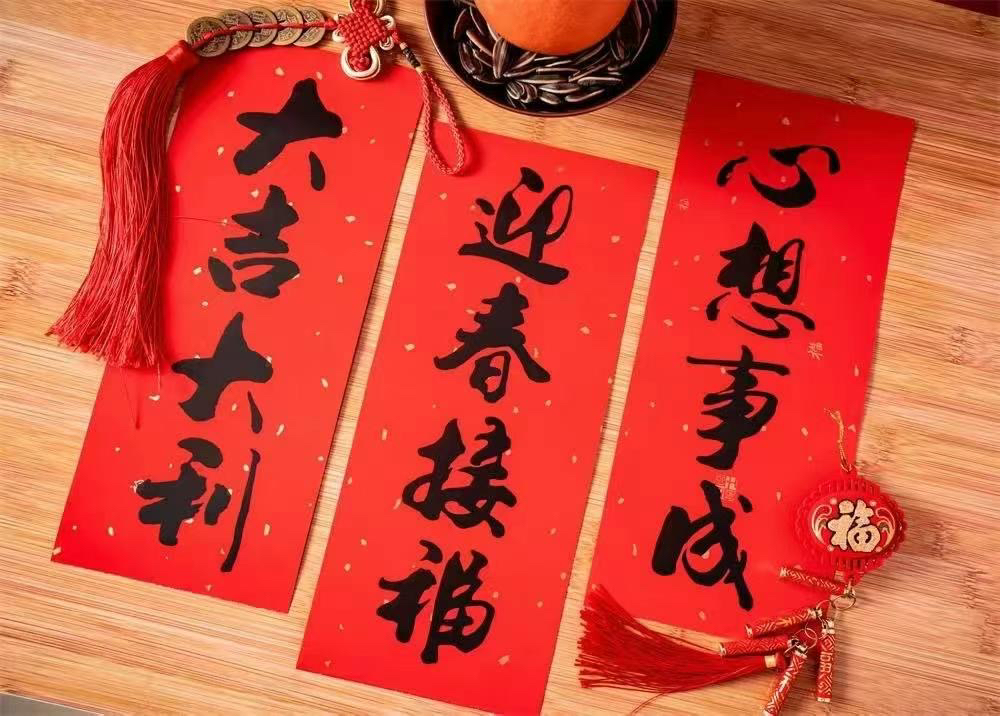 大吉大利
迎春接福
心想事成
福